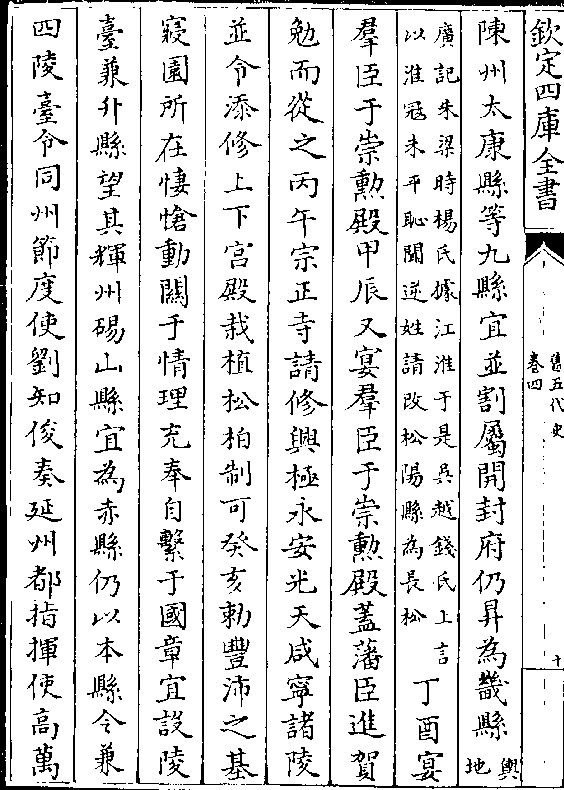 欽定四庫全書
舊五代史
卷四
十
陳州太康縣等九縣宜並割屬開封府仍昇為畿縣輿地
廣記朱梁時楊氏據江淮于是吳越錢氏上言
以淮冦未平恥聞逆姓請改松陽縣為長松
丁酉宴
羣臣于崇勲殿甲辰又宴羣臣于崇勲殿蓋藩臣進賀
勉而從之丙午宗正寺請修興極永安光天咸寧諸陵
並令添修上下宫殿栽植松柏制可癸亥勅豐沛之基
寝園所在悽愴動關于情理充奉自繫于國章宜設陵
臺兼升縣望其輝州碭山縣宜為赤縣仍以本縣令兼
四陵臺令同州節度使劉知俊奏延州都指揮使高萬